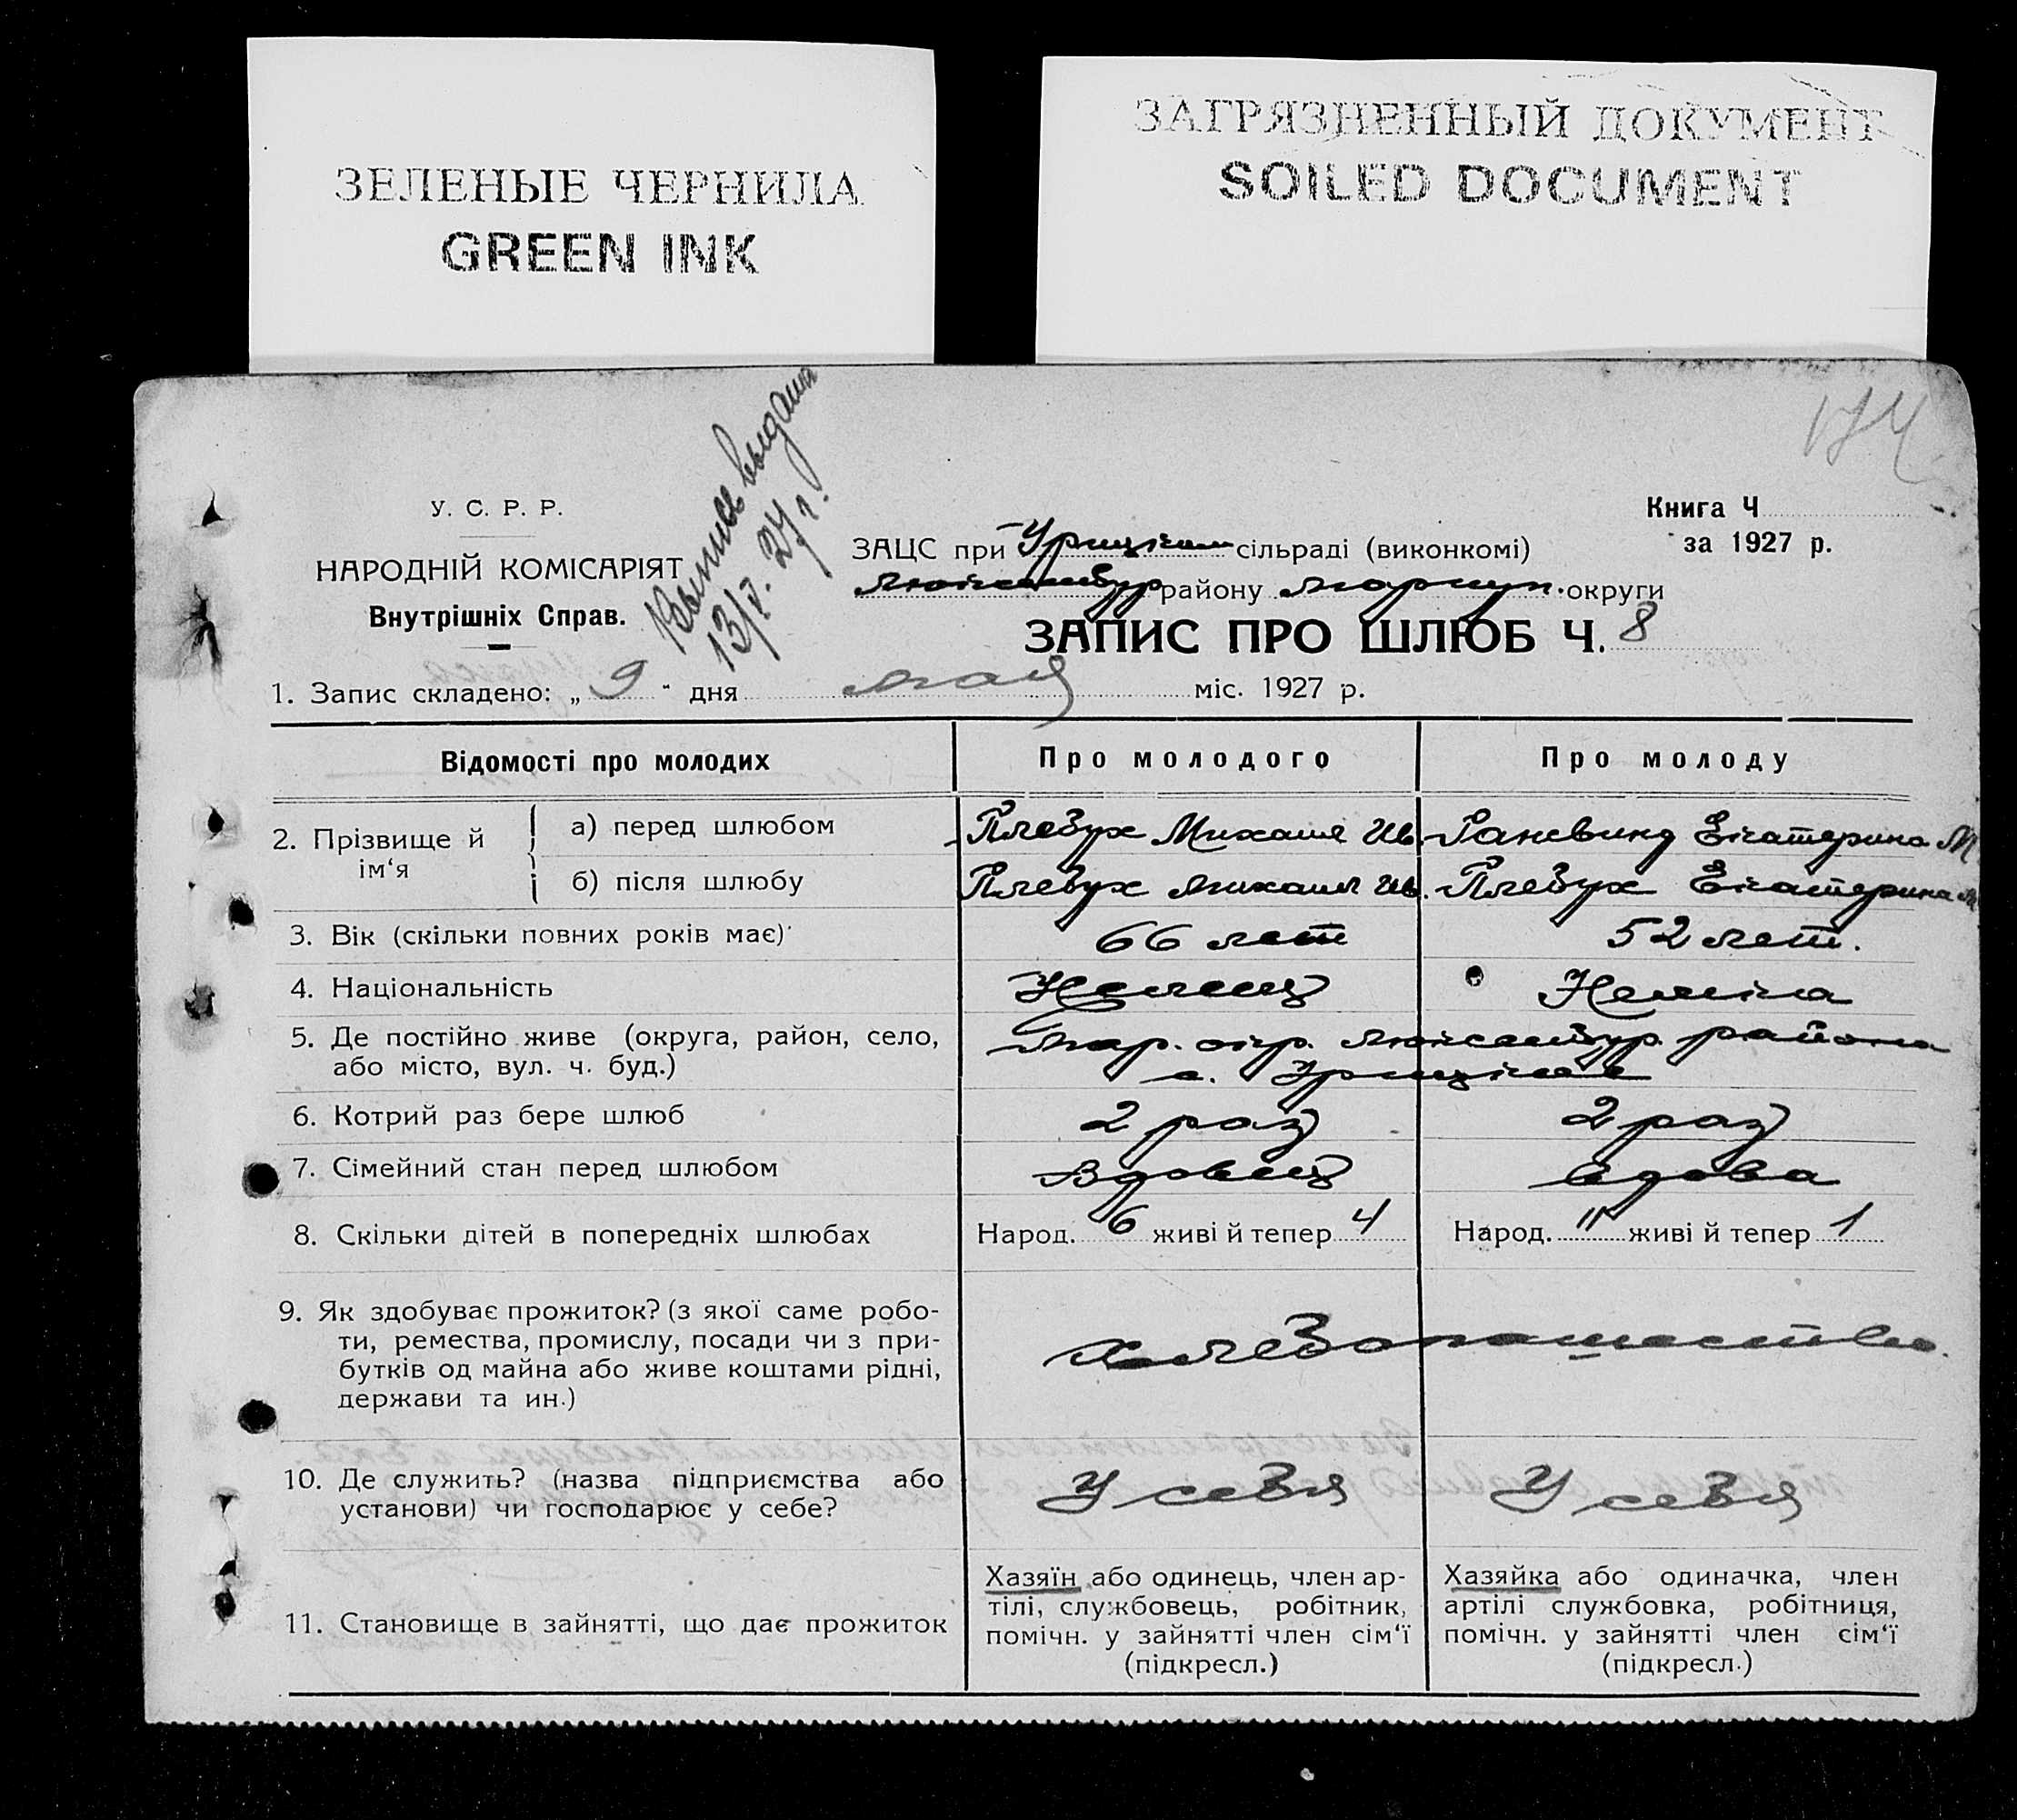 ЗЕЛЕНЫЕ ЧЕРНИЛА
GREEN INK
ЗАГРЯЗНЕННЫЙ ДОКУМЕНТ
SOILED DOCUMENT
174
У. С. Р. Р.
НАРОДНІЙ КОМІСАРІЯТ
Внутрішніх Справ.
Выпись выдана
13/V. 27 г.
Книга Ч
за 1927 р.
ЗАЦС при Урицком сільраді (виконкомі)
Люксембур району Мариуп. округи
ЗАПИС ПРО ШЛЮБ Ч. 8
1. Запис складено: „ 9 " дня мая міс. 1927 р.
Відомості про молодих Про молодого Про молоду
2. Прізвище й ім‘я
а) перед шлюбом Плебух Михаил Ив. Екатерина М
б) після шлюбу Плебух Михаил Ив. Плебух Екатерина М
3. Вік (скільки повних років має) 66 лет 52 лет.
4. Національність Немец Немка
5. Де постійно живе (округа, район, село, Мар. окр. Люксембур. района
або місто, вул. ч. буд.) с. Урицкое
6. Котрий раз бере шлюб 2 раз 2 раз
7. Сімейний стан перед шлюбом Вдовец вдова
8. Скільки дітей в попередніх шлюбах Народ. 6 живі й тепер 4 Народ. 11 живі й тепер 1
9. Як здобуває прожиток? (з якої саме робо-
ти, ремества, промислу, посади чи з при-
бутків од майна або живе коштами рідні,
держави та ин.)
хлебопашество.
10. Де служить? (назва підприємства або
установи) чи господарює у себе?
У себя У себя
11. Становище в зайнятті, що дає прожиток
Хазяїн або одинець, член ар-
тілі, службовець, робітник,
помічн. у зайнятті член сім‘ї
(підкресл.)
Хазяйка або одиначка, член
артілі службовка, робітниця,
помічн. у зайнятті член сім‘ї
(підкресл.)